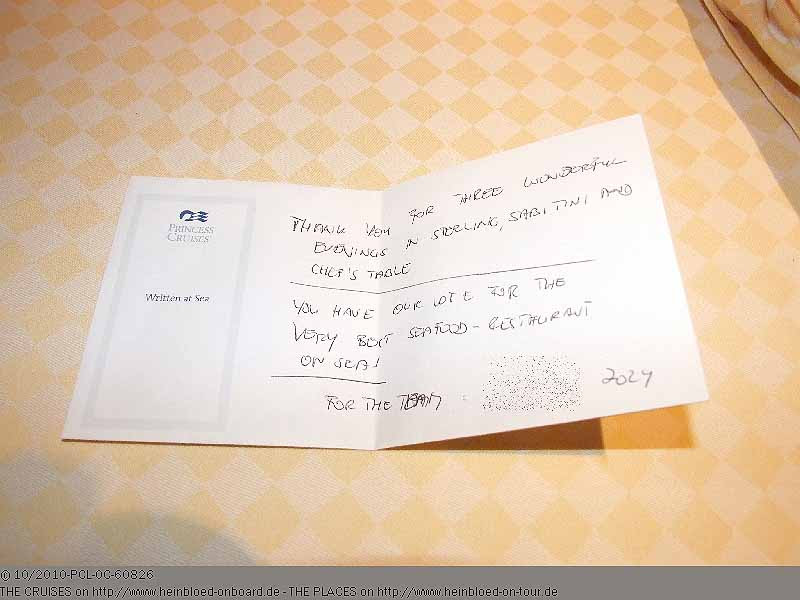 PRINCESS
CRUISES
Written at Sea
THANK YOU FOR THREE WONDERFUL
EVENINGS IN STERLING, SABITINI AND
CHEF'S TABLE
YOU HAVE OUR VOTE FOR THE
VERY BEST SEAFOOD-RESTAURANT
ON SEA!
FOR THE TEAM :
© 10/2010-PCL-OC-60826
THE CRUISES on http://www.heinbloed-onboard.de - THE PLACES on http://www.heinbloed-on-tour.de